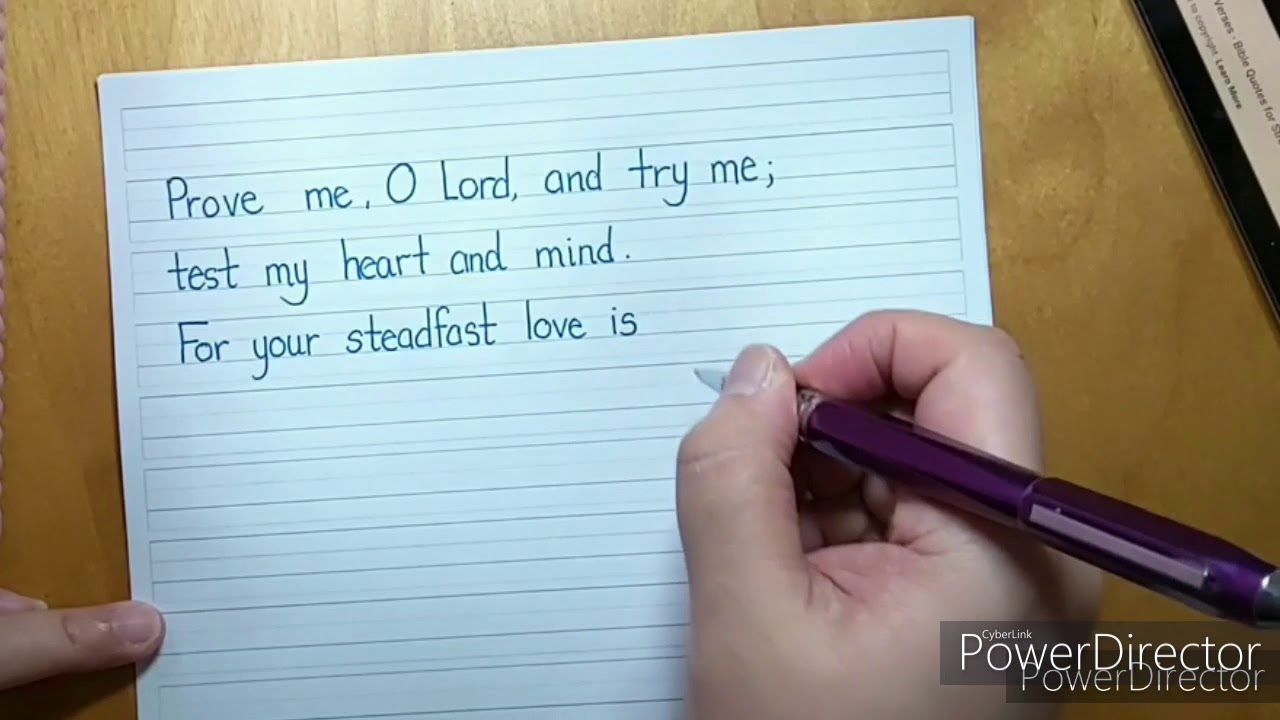 Prove me, O Lord, and try me;
test my heart and mind.
For your steadfast love is
Verses - Bible Quotes for
to copyright. Learn More
CyberLink
PowerDirector
PowerDirector